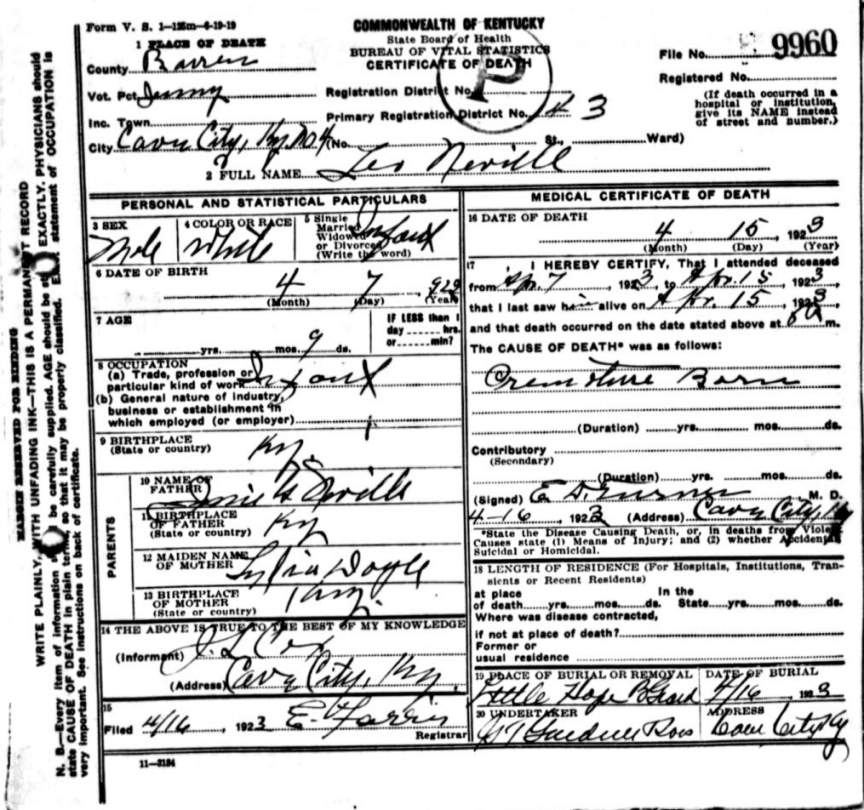 Form V. S. 1-125m-4-19-19
COMMONWEALTH OF KENTUCKY
State Board of Health
BUREAU OF VITAL STATISTICS
CERTIFICATE OF DEATH
File No. 9960
Registered No.
(If death occurred in a hospital or institution, give its NAME instead of street and number.)
1 PLACE OF DEATH
County Barren
Vot. Pct.
Inc. Town
City Cave City, Ky (No. St., Ward)
Registration District No.
Primary Registration District No. 43
P
2 FULL NAME Leo Nevill
PERSONAL AND STATISTICAL PARTICULARS
3 SEX Male
4 COLOR OR RACE White
5 Single Married Widowed or Divorced (Write the word) Infant
6 DATE OF BIRTH 4 7 1923
(Month) (Day) (Year)
7 AGE yrs. mos. 9 ds.
IF LESS than 1 day hrs. or min?
8 OCCUPATION
(a) Trade, profession or particular kind of work Infant
(b) General nature of industry, business or establishment in which employed (or employer)
9 BIRTHPLACE (State or country) Ky.
PARENTS
10 NAME OF FATHER Nevills
11 BIRTHPLACE OF FATHER (State or country) Ky
12 MAIDEN NAME OF MOTHER Doyle
13 BIRTHPLACE OF MOTHER (State or country) Ky.
14 THE ABOVE IS TRUE TO THE BEST OF MY KNOWLEDGE
(Informant) J. L. Cox
(Address) Cave City, Ky.
15
Filed 4/16, 1923 Registrar
11-3184
MEDICAL CERTIFICATE OF DEATH
16 DATE OF DEATH
4 15, 1923
(Month) (Day) (Year)
17 I HEREBY CERTIFY, That I attended deceased
from Apr. 7, 1923, to Apr. 15, 1923
that I last saw him alive on Apr. 15, 1923
and that death occurred on the date stated above at m.
The CAUSE OF DEATH* was as follows:
Premature Born
(Duration) yrs. mos. ds.
Contributory
(Secondary)
(Duration) yrs. mos. ds.
(Signed) E. D. Turner M. D.
4-16, 1923 (Address) Cave City, Ky
*State the Disease Causing Death, or, in deaths from Violent Causes state (1) Means of Injury; and (2) whether Accidental, Suicidal or Homicidal.
18 LENGTH OF RESIDENCE (For Hospitals, Institutions, Transients or Recent Residents)
at place of death yrs. mos. ds. In the State yrs. mos. ds.
Where was disease contracted,
if not at place of death?
Former or
usual residence
19 PLACE OF BURIAL OR REMOVAL Little Hope
DATE OF BURIAL 4/16 1923
20 UNDERTAKER Gardner Bros
ADDRESS Cave City Ky
MARGIN RESERVED FOR BINDING
WRITE PLAINLY, WITH UNFADING INK—THIS IS A PERMANENT RECORD
N. B.—Every item of information be carefully supplied. AGE should be EXACTLY. PHYSICIANS should
state CAUSE OF DEATH in plain terms so that it may be properly classified. statement of OCCUPATION is
very important. See instructions on back of certificate.